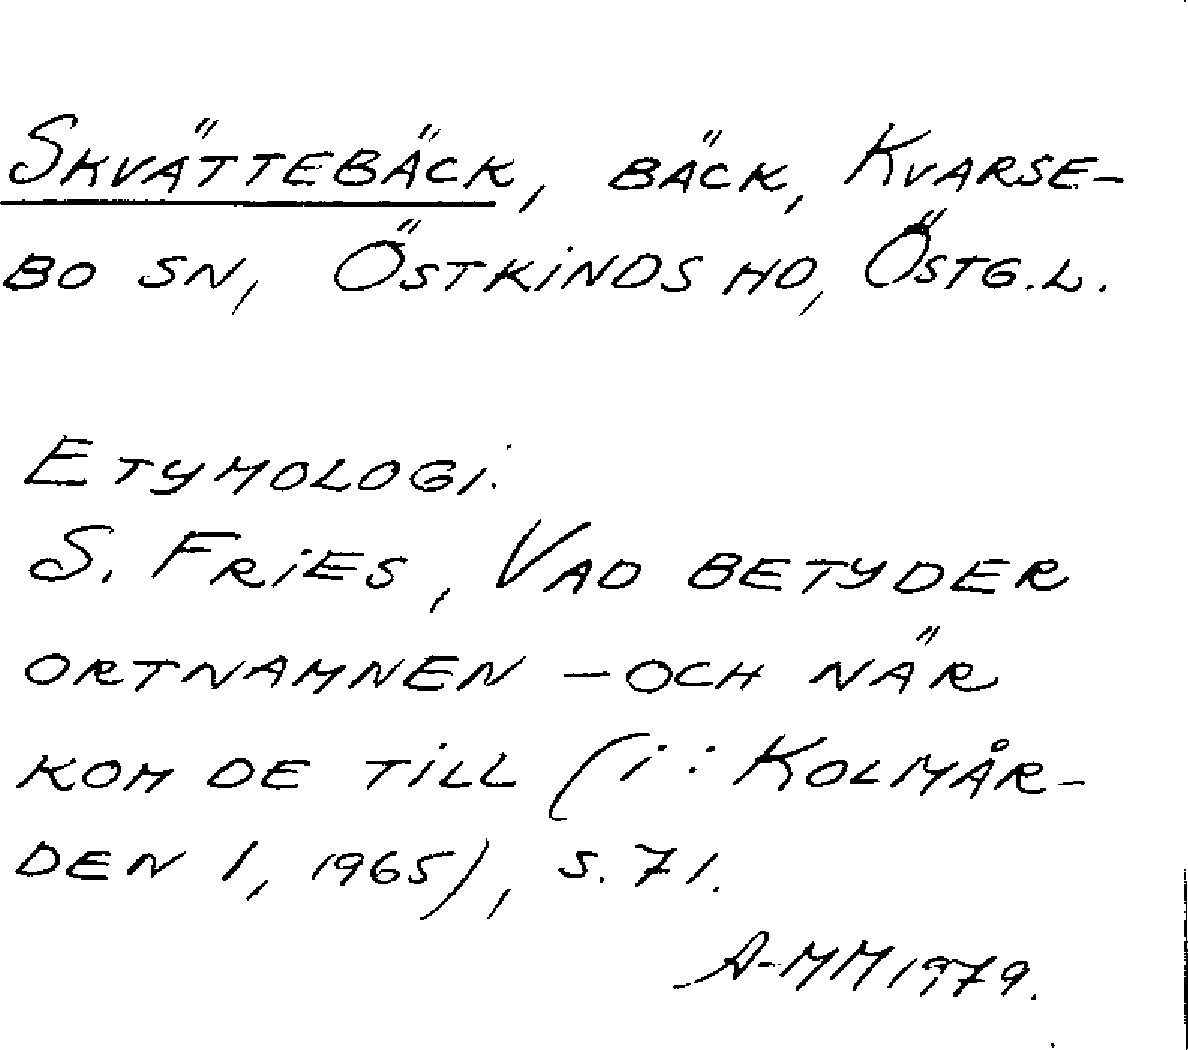 Skvättebäck, bäck, Kvarse-
bo sn, Östkinds hd, Östg.l.
Etymologi.
S. Fries, Vad betyder
ortnamnen – och när
kom de till (i: Kolmår-
den 1, 1965), s. 71.
A-MM 1979.